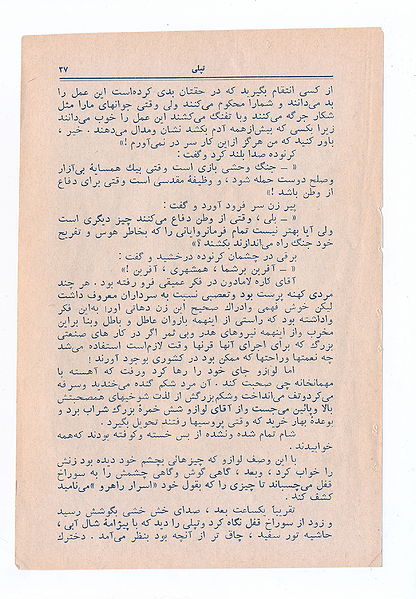 تپلی
۳۷
از کسی انتقام بگیرید که در حقتان بدی کرده‌است این عمل را
بد می‌دانند و شمارا محکوم می‌کنند ولی وقتی جوانهای مارا مثل
شکار جرگه می‌کنند وبا تفنگ می‌کشند این عمل را خوب می‌دانند
زیرا بکسی که بیش‌ازهمه آدم بکشد نشان ومدال می‌دهند . خیر ،
باور کنید که من هرگز ازاین کار سر در نمی‌آورم !»
کرنوده صدا بلند کرد وگفت :
« ــ جنگ وحشی بازی است وقتی بیک همسایهٔ بی‌آزار
وصلح دوست حمله شود ، و وظیفهٔ مقدسی است وقتی برای دفاع
از وطن باشد !»
پیر زن سر فرود آورد و گفت :
« ــ بلی ، وقتی از وطن دفاع می‌کنند چیز دیگری است
ولی آیا بهتر نیست تمام فرمانروایانی را که بخاطر هوس و تفریح
خود جنگ راه می‌اندازند بکشند ؟»
برقی در چشمان کرنوده درخشید و گفت :
« ــ آفرین برشما ، همشهری ، آفرین !»
آقای کاره لامادون در فکر عمیقی فرو رفته بود . هر چند
مردی کهنه پرست بود وتعصبی نسبت به سرداران معروف داشت
لیکن هوش فهمی وادراک صحیح این زن دهاتی اورا به‌این فکر
واداشته بود که راستی از اینهمه بازوان عاطل و باطل وبنا براین
مخرب واز اینهمه نیروهای هدر وبی ثمر اگر در کار های صنعتی
بزرگ که برای اجرای آنها قرنها وقت لازم‌است استفاده می‌شد
چه نعمتها وراحتها که ممکن بود در کشوری بوجود آورند !
اما لوازو جای خود را رها کرد ورفت که آهسته با
مهمانخانه چی صحبت کند . آن مرد شکم گنده می‌خندید وسرفه
می‌کردوتف می‌انداخت وشکم‌بزرگش از لذت شوخیهای همصحبتش
بالا وپائین می‌جست واز آقای لوازو شش خمرهٔ بزرگ شراب بردو
بوعدهٔ بهار خرید که وقتی پروسیها رفتند تحویل بگیرد .
شام تمام شده ونشده از بس خسته وکوفته بودند که‌همه
خوابیدند .
با این وصف لوازو که چیزهائی بچشم خود دیده بود زنش
را خواب کرد ، وبعد ، گاهی گوش وگاهی چشمش را به سوراخ
قفل می‌چسباند تا چیزی را که بقول خود «اسرار راهرو »می‌نامید
کشف کند .
تقریباً یکساعت بعد ، صدای خش خشی بگوشش رسید
و زود از سوراخ قفل نگاه کرد وتپلی را دید که با پیژامهٔ شال آبی ،
حاشیه تور سفید ، چاق تر از آنچه بود بنظر می‌آمد . دخترک